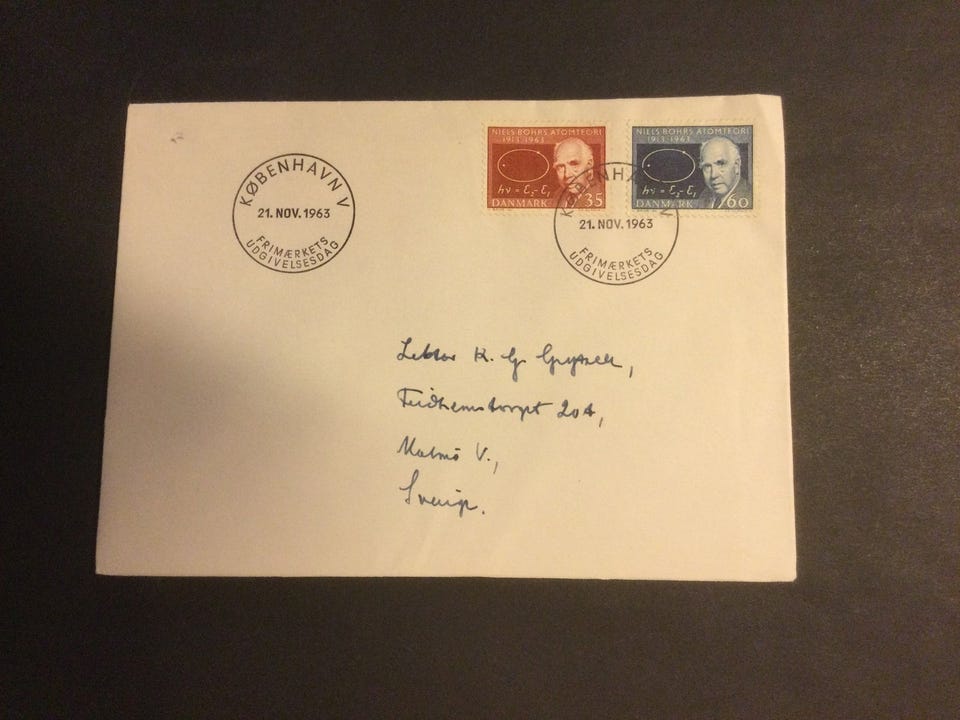 KØBENHAVN V
21. NOV. 1963
FRIMÆRKETS
UDGIVELSESDAG
NIELS BOHRS ATOMTEORI
1913-1963
hν = E₂-E₁
DANMARK 35
NIELS BOHRS ATOMTEORI
1913-1963
hν = E₂-E₁
DANMARK 60
KØBENHAVN V
21. NOV. 1963
FRIMÆRKETS
UDGIVELSESDAG
Lektor K. G.
20A,
Malmö V.,
Sverige.